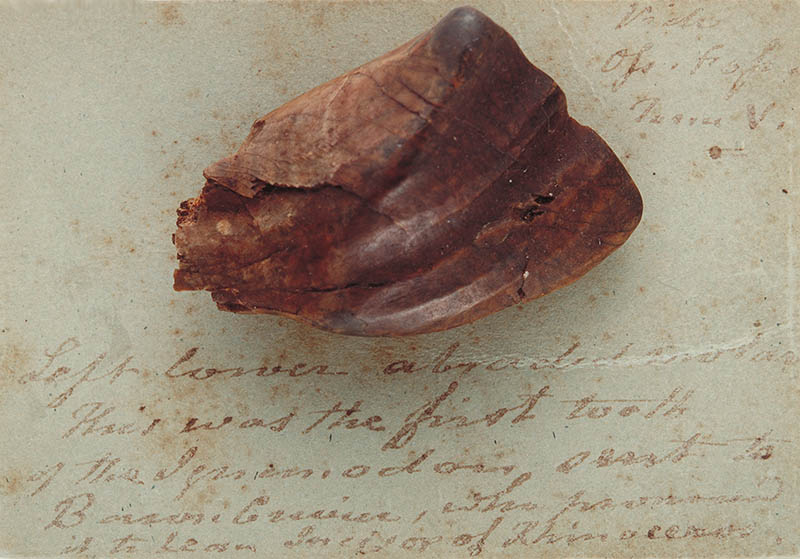 Vide
Os. Foss
Tome V.
Left lower abraded molar
This was the first tooth
of the Iguanodon sent to
Baron Cuvier, who pronounced
it to be an Incisor of Rhinoceros.